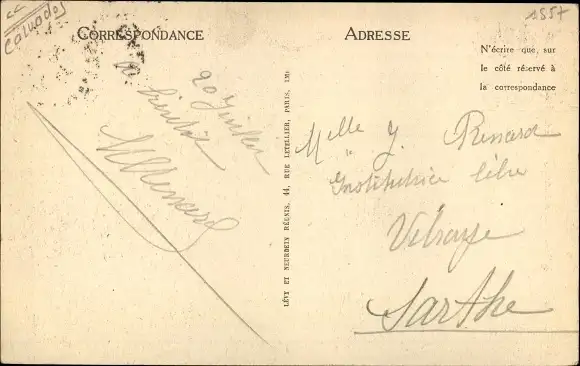 Calvados
CORRESPONDANCE
ADRESSE
1857
N'écrire que, sur
le côté réservé à
la correspondance
20 Juillet
A bientôt
LÉVY ET NEURDEIN RÉUNIS, 44, RUE LETELLIER, PARIS, IMP
Melle J. Renard
Institutrice libre
Sarthe